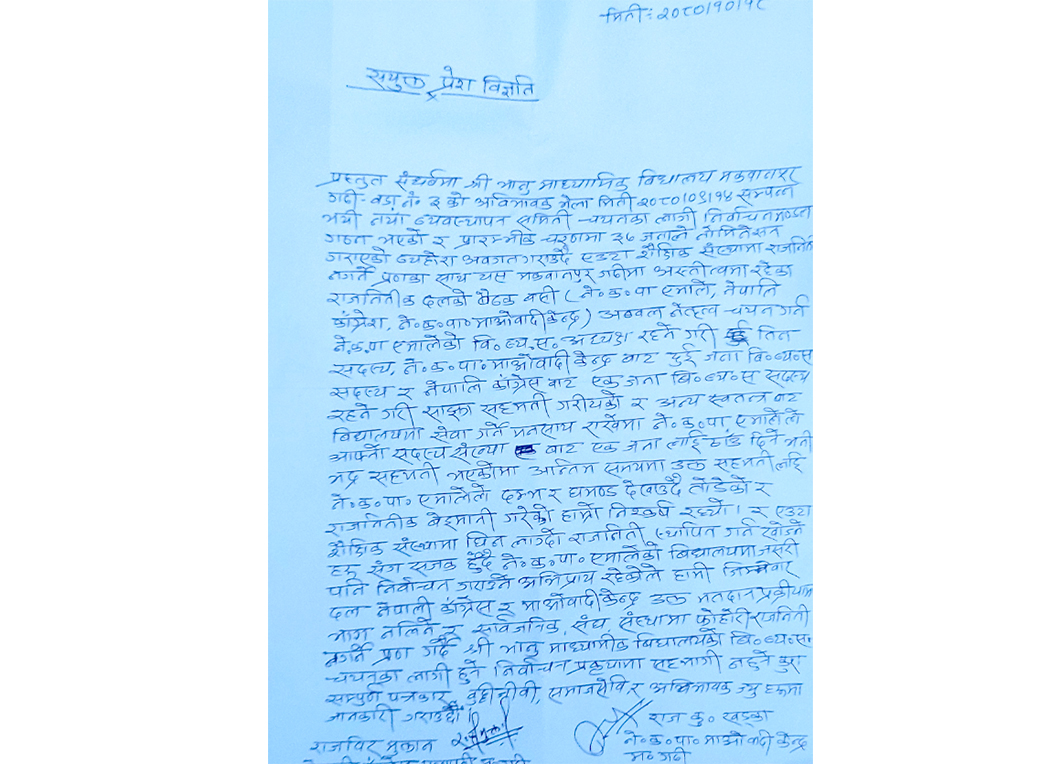 मिती: २०८०।१०।१८
सयुक्त प्रेश विज्ञप्ति
प्रस्तुत संदर्भमा श्री भानु माध्यामिक विद्यालय मकवानपुर
गढी-वडा नं ३ को अविभावक भेला मिती २०८०।०९।१४ सम्पन्न
भयी नयां व्यवस्थापन समिती चयनका लागी निर्वाचनमण्डल
गठन भएको र प्रारम्भीक चरणमा ३७ जनाले नोमिनेसन
गराएको व्यहोरा अवगतगराउदै एउटा शैक्षिक संस्थामा राजनिति
नगर्ने प्रणका साथ यस मकवानपुर गढीमा अस्तीत्वमा रहेका
राजनितीक दलको बैठक बसी (ने०क०पा एमाले, नेपालि
कांग्रेश, ने०क०पा०माओवादी केन्द्र) अव्वल नेतृत्व चयन गर्न
ने.क.पा एमालेको वि.व्य.स. अध्यक्ष रहने गरी तिन
सदस्य, ने०क०पा०माओवादी केन्द्र बाट दुई जना बि०व्य०स
सदस्य र नेपालि कांग्रेस बाट एक जना बि०व्य०स सदस्य
रहने गरी साझा सहमती गरीयको र अन्य स्वतन्त्र बाट
विद्यालयमा सेवा गर्ने मनसाय राखेमा ने०क०पा एमालेले
आफ्नो सदस्य संख्या बाट एक जना लाई ठाउं दिने भनी
भद्र सहमती भएकोमा अन्तिम समयमा उक्त सहमती लाई
ने०क०पा० एमालेले दम्भ र घमण्ड देखाउदै तोडेको र
राजनितीक बेइमानी गरेको हाम्रो निश्कर्ष रह्यो। र एउटा
शैक्षिक संस्थामा घिन लाग्दो राजनिती स्थापित गर्न खोज्ने
हरु संग सजक हुदै ने०क०पा० एमालेको बिद्यालयमा जसरी
पनि निर्वाचन गराउने अभिप्राय रहेकोले हामी जिम्मेवार
दल नेपाली कांग्रेस र माओवादी केन्द्र उक्त मतदान प्रकीयामा
भाग नलिने र सार्वजनिक, संघ, संस्थामा फोहोरी राजनिती
नगर्ने प्रण गर्दै श्री भानु माध्यामीक बिद्यालयको बि०व्य०स०
चयनका लागी हुने निर्वाचन प्रकृयामा सहभागी नहुने कुरा
सम्पुर्ण पत्रकार, वुद्दीजीवी, समाजसेवि र अभिभावक ज्यु हरुमा
जानकारी गराउदछौं।
राजविर मुक्तान
राज कु० खड्का
ने०क०पा०माओवादी केन्द्र
म०गढी